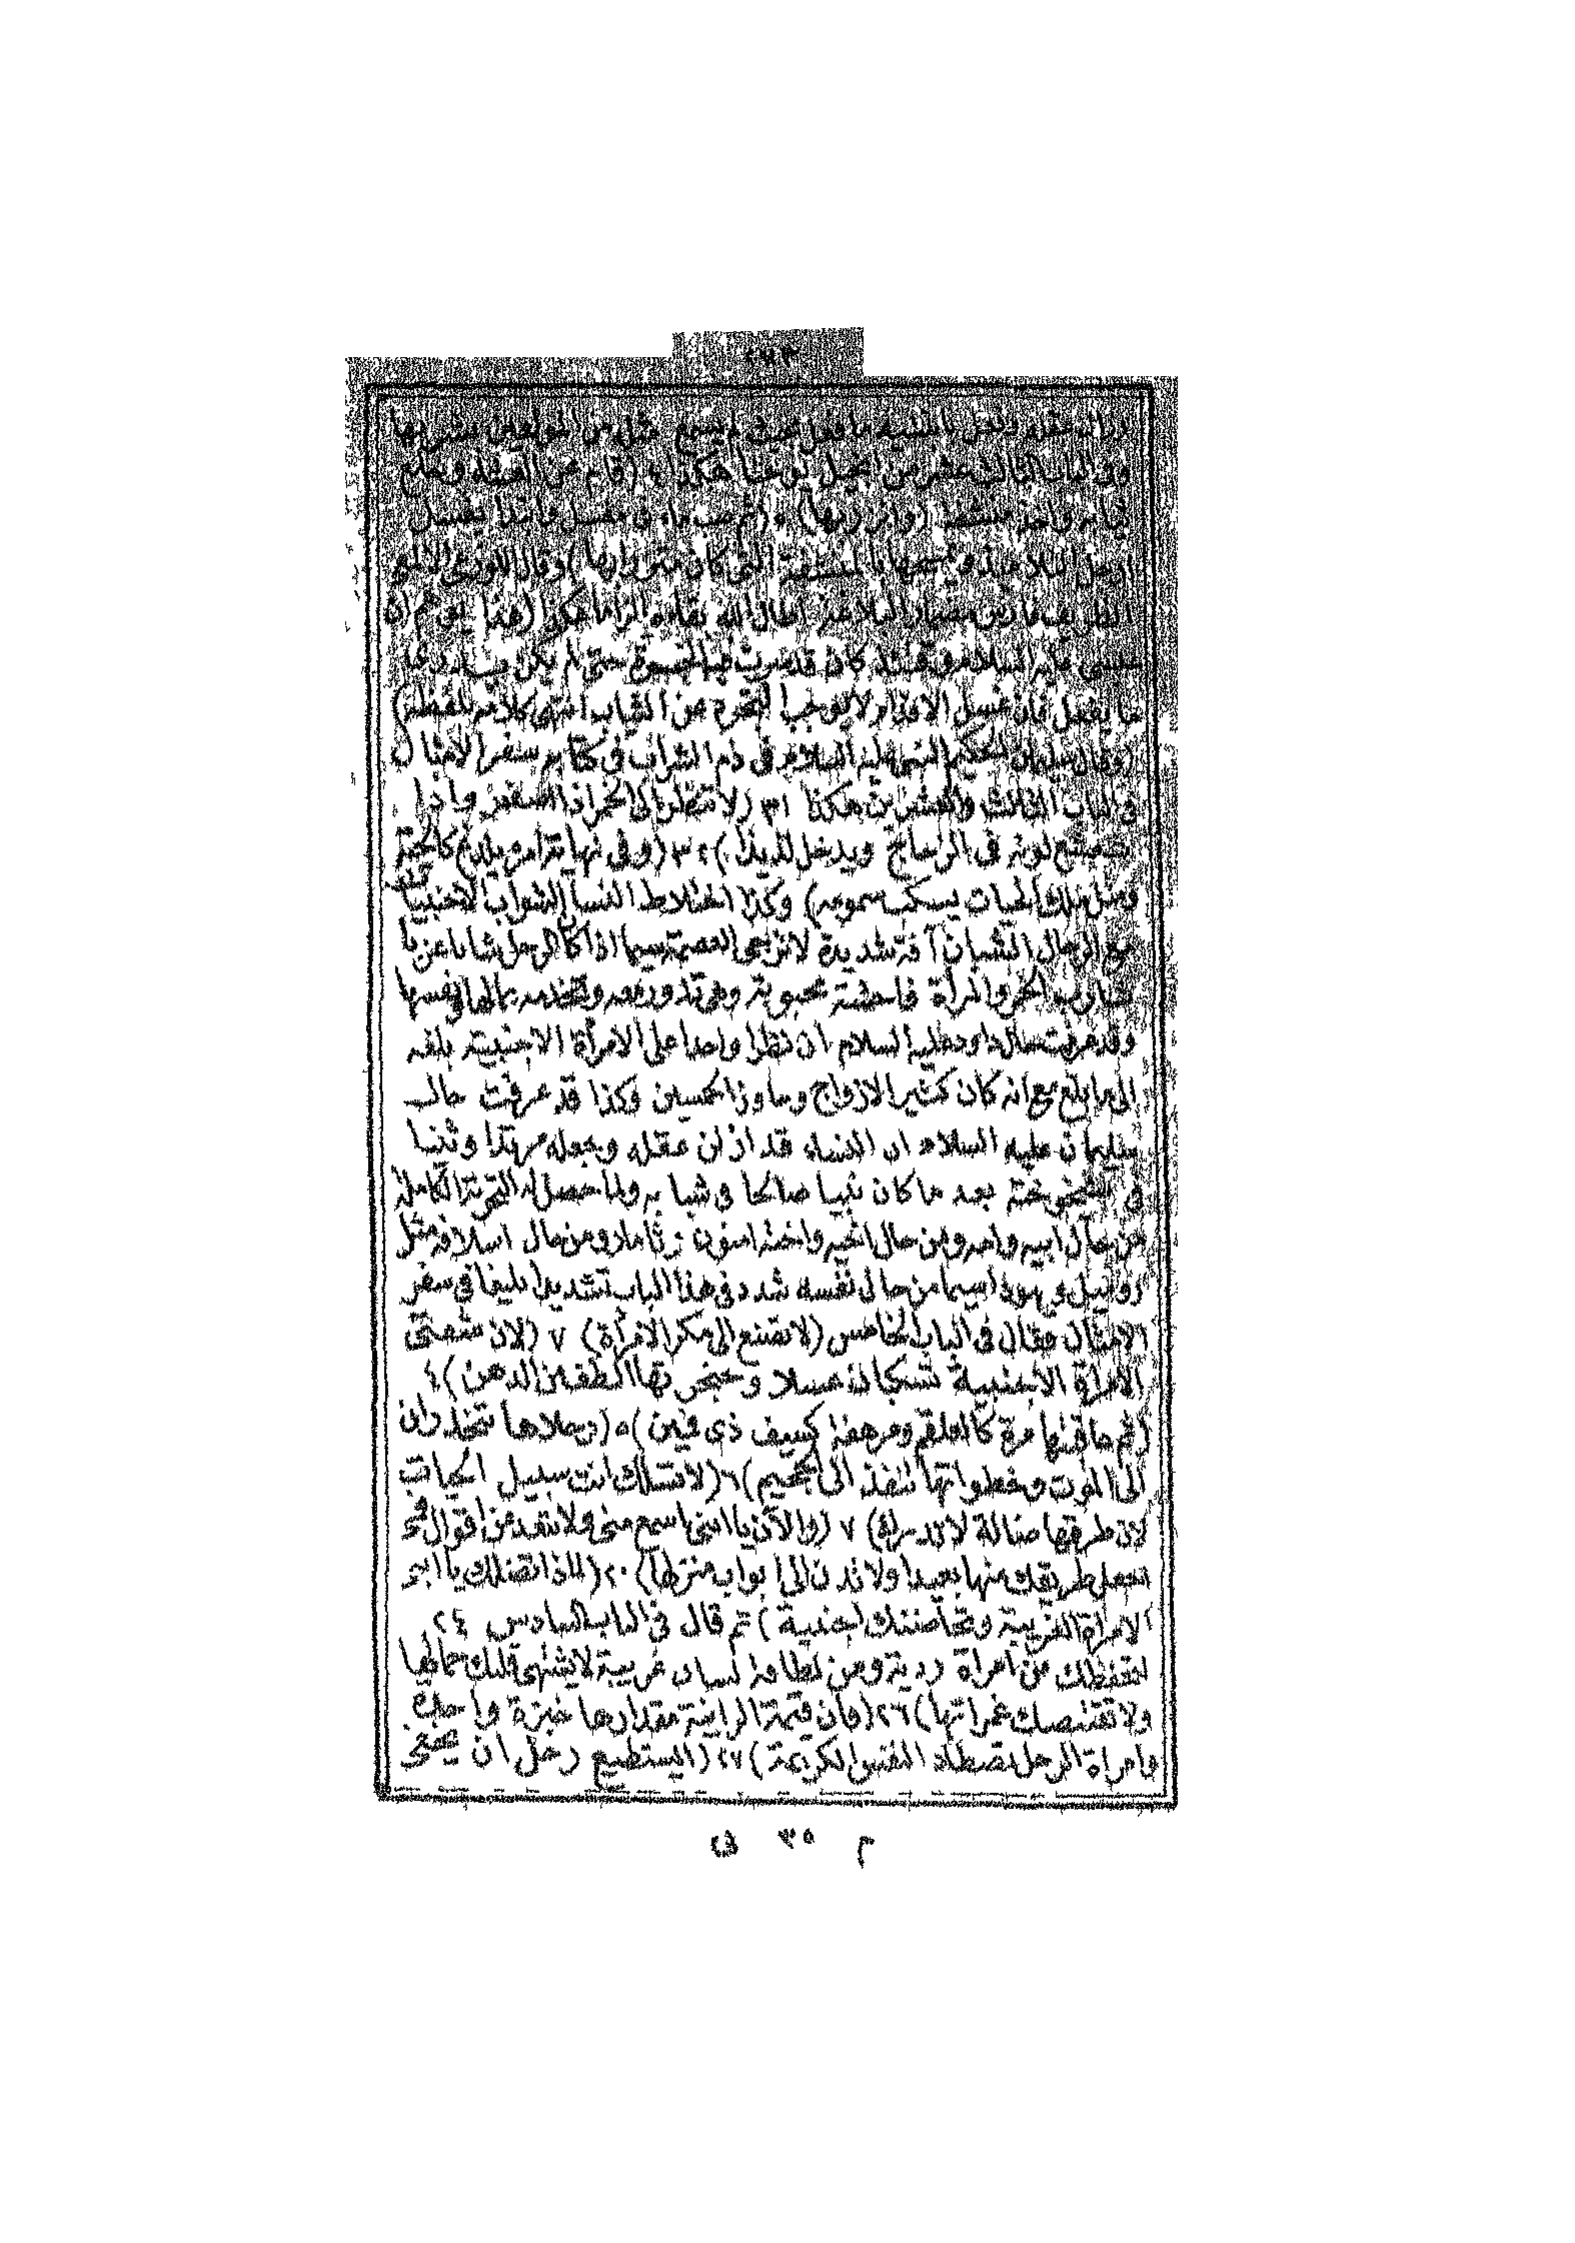 ٢٧٣
زال عقله وفعل بابنتيه ما فعل بحيث لم يسمع مثله من المولعين بشربها
وفي الباب الثالث عشر من انجيل يوحنا هكذا ٤ (قام عن العشاء وخلع
ثيابه واخذ منشفة واتزر بها) ٥ (ثم صب ماء في مغسل وابتدا يغسل
ارجل التلاميذ ويمسحها بالمنشفة التي كان متزرا بها) وقال اللوذعي الالمعي
الظريف فارس مضمار البلاغة اطال الله بقاءه الزاما هكذا (هذا يوهم ان
عيسى عليه السلام وقتئذ كان قد سرت فيه الخمرة حتى لم يكن يدري
ما يفعل فان غسل الاقدام لا يوجب التجرد عن الثياب انتهى كلامه بلفظه)
(وقال سليمان الحكيم النبي عليه السلام في ذم الشراب في كتابه سفر الامثال
في الباب الثالث والعشرين هكذا ٣١ (لا تنظر الى الخمر اذا اصفرت واذا
لونه في الزجاج ويدخل لذيذا) ٣٢ (وفي نهايته امره يلدغ كالحية
ومثل ملك الحيات يسكب سمومه) وكذا اختلاط النساء الشواب الاجنبيات
مع الرجال الشبان آفة شديدة لا ترجى العصمة سيما اذا كان الرجل شابا عزبا
شارب الخمر والمرأة فاحشة محبوبة وهي تدور معه وتخدمه بمالها ونفسها
وقد عرفت حال داود عليه السلام ان نظرا واحدا على الامرأة الاجنبية بلغه
الى ما بلغ مع انه كان كثير الازواج وجاوز الخمسين وكذا قد عرفت حال
سليمان عليه السلام ان النساء قد ازلن عقله وجعله مرتدا وثنيا
في شيخوخته بعد ما كان نبيا صالحا في شبابه ولما حصل له التجربة الكاملة
من حال ابيه وامه ومن حال اخيه واخته امنون وثامار ومن حال اسلافه مثل
روبيل ويهودا سيما من حال نفسه شدد في هذا الباب تشديدا بليغا في سفر
الامثال فقال في الباب الخامس (لا تصنع الى مكر الامرأة) ٧ (لان شفتي
الامرأة الاجنبية تسكبان عسلا وحنجرتها الطف من الدهن) ٤
(ثم عاقبتها مرة كالعلقم ومرهفة كسيف ذي فمين) ٥ (رجلاها تنحدران
الى الموت وخطواتها تنفذ الى الجحيم) ٦ (لا تسلك انت سبيل الحيات
لان طرقها ضالة لا تدرك) ٧ (والآن يا ابني اسمع مني ولا تبعد من اقوال فمي
اجعل طريقك منها بعيدا ولا تدن الى ابواب منزلها) ٢٠ (لماذا تضلك يا ابني
الامرأة الغريبة وتحاضنك اجنبية) ثم قال في الباب السادس ٢٤
لتحفظك من امرأة ردية ومن لطافة لسان غريبة لا يشتهي قلبك جمالها
ولا تقتنصك غمزاتها) ٢٦ (فان قيمة الزانية مقدارها خبزة واحدة
وامراة الرجل تصطاد النفس الكريمة) ٢٧ (ايستطيع رجل ان يخفي
م ٣٥ ني